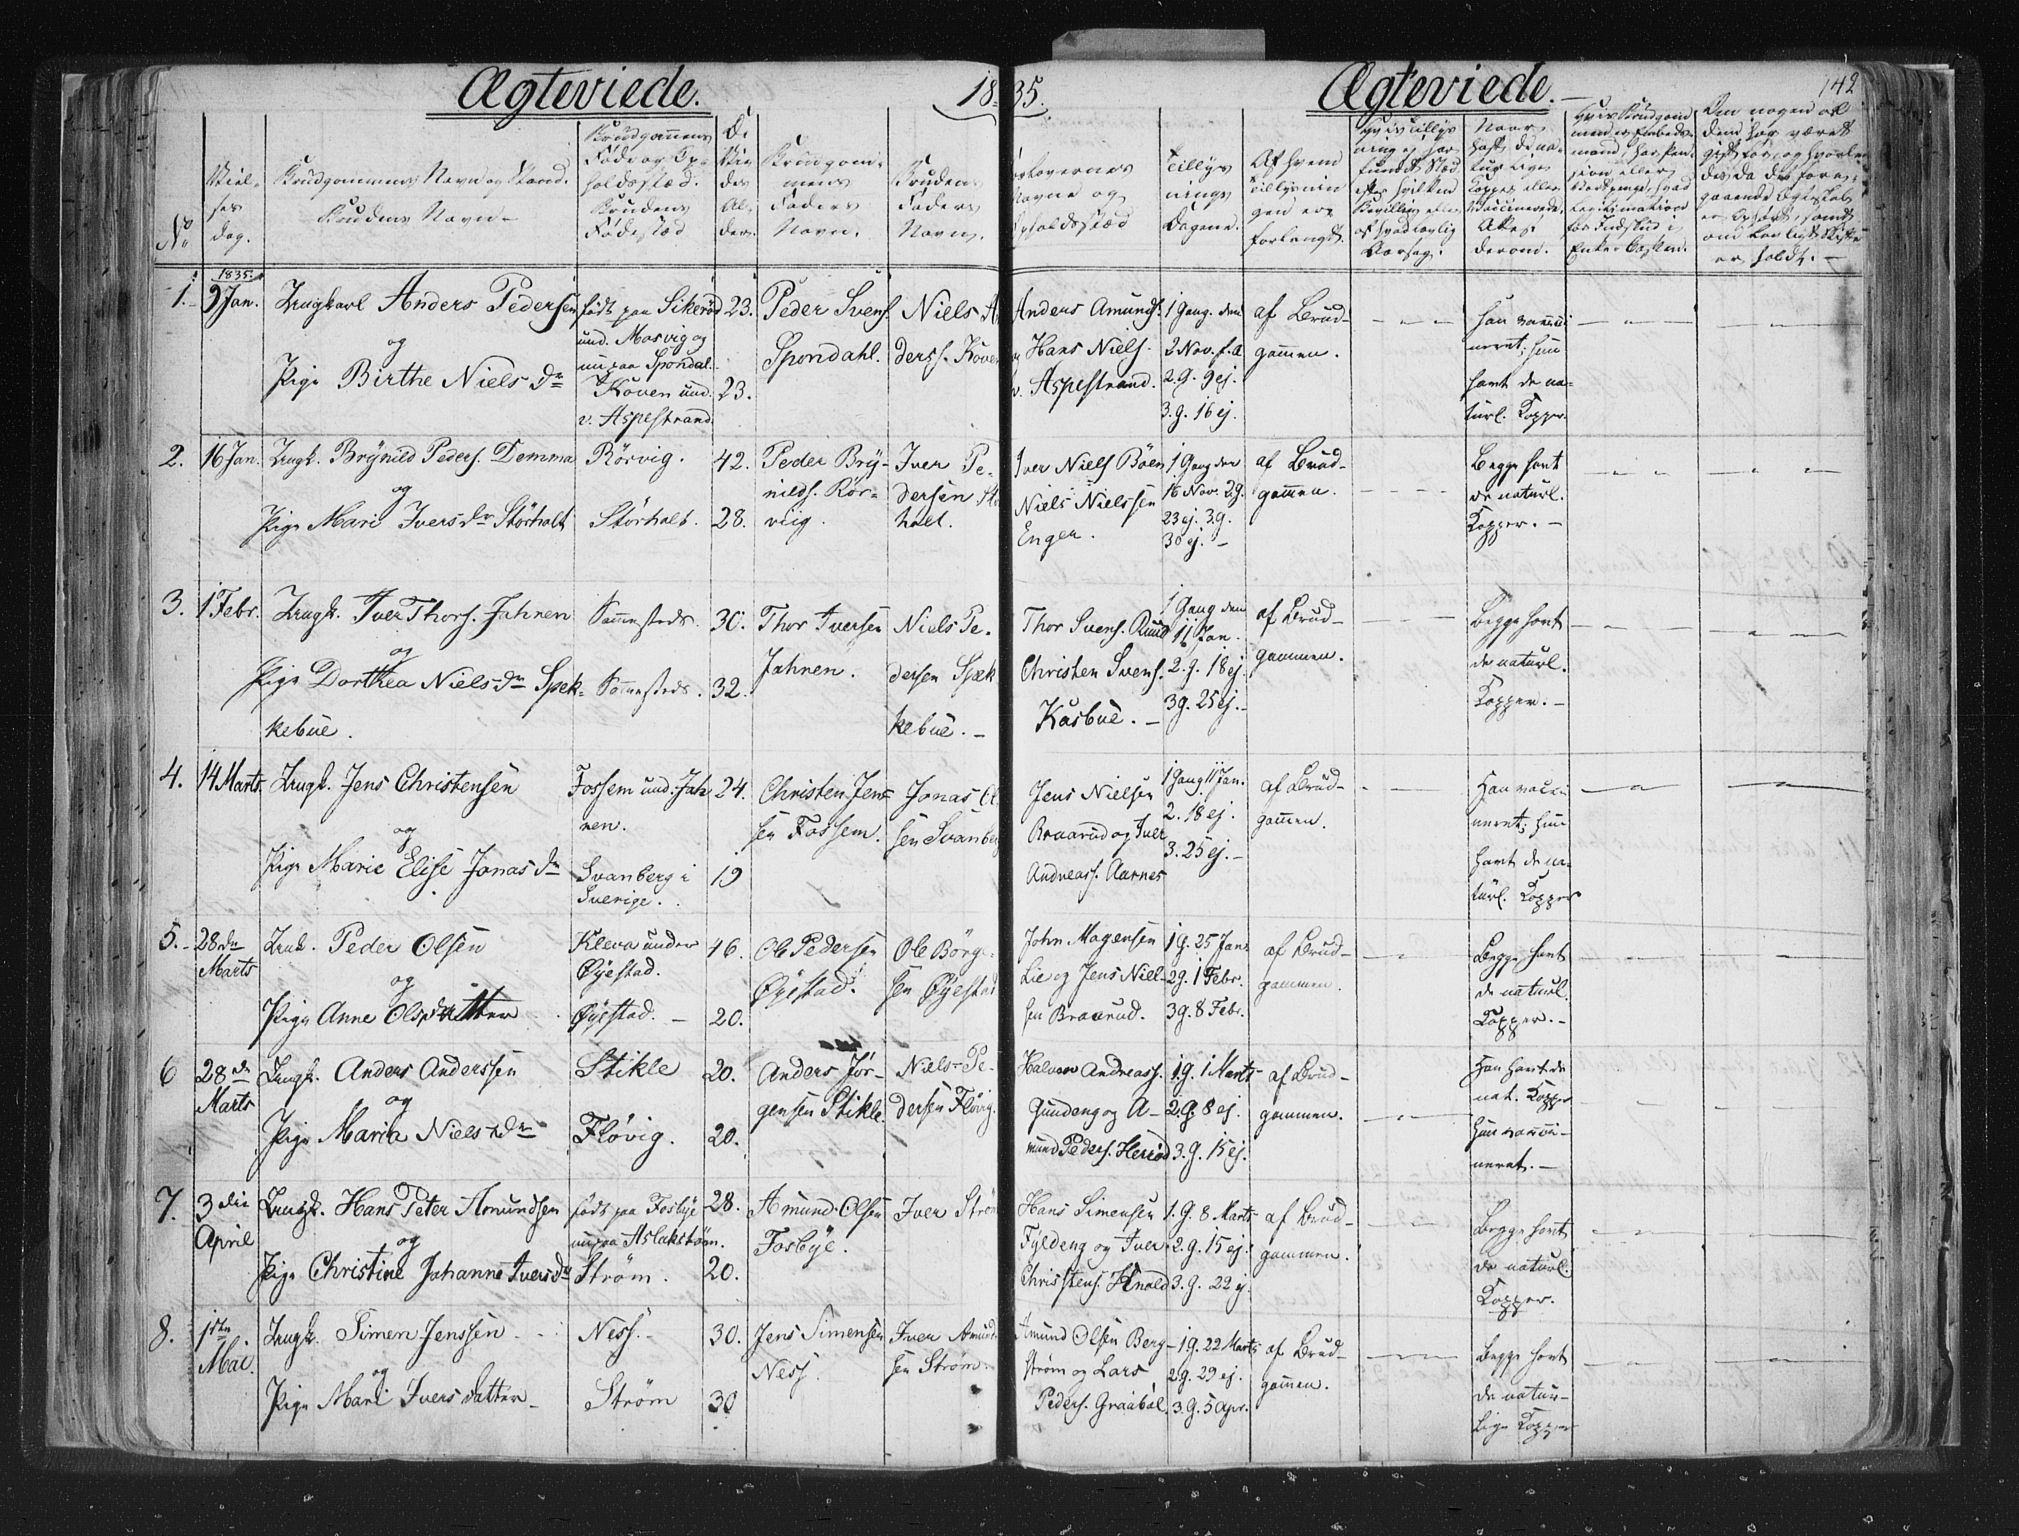 Ægteviede. 1835. Ægteviede. 142
No
Viel-
ses
dag.
Brudgommens Navn og Stand.
Brudens Navn
Brudgommens
Føde og Op-
holdssted.
Brudens
Fødested
De
Vie
des
Al-
der.
Brudgom-
mens
Faders
Navn.
Brudens
Faders
Navn.
Forlovernes
Navne og
Opholdssted
Tillys-
nings
Dagene.
Af hvem
Tillysnin
gen er
forlangt.
1. 1835. 9 Jan. Ungkarl Anders Pedersen
og
Pige Birthe Niels Dr
født paa Sikerød
und. Mosvig og
nu paa Spondal.
Koven und.
v. Aspestrand.
23.
23.
Peder Svens.
Spondahl.
Niels An
ders. Koven
Anders Amunds.
og Hans Niels.
v. Aspestrand.
1 Gang den
2 Nov. f. A
2. g. 9 ej.
3. g. 16 ej.
af Brud-
gommen.
Han vacci
neret; hun
havt de na-
turl. Kopper.
2. 16 Jan. Ungk. Brynild Peders. Demma
og
Pige Mari Ivers Dr Störholt
Rörvig.
Störholt.
42.
28.
Peder Bry-
nilds. Rör-
viig.
Iver Pe-
dersen Stö
holt.
Iver Niels Böen
Niels Nielssen
Enger.
1 Gang den
16 Nov. 2 g.
23 ej. 3. g.
30 ej. -
af Brud-
gommen.
Begge havt
de naturl.
Kopper. -
3. 1 Febr. Ungk. Iver Thors. Jahren
og
Pige Dorthea Niels Dr Spek-
kebue.
Sammesteds.
Sammesteds.
30.
32.
Thor Iversen
Jahren.
Niels Pe-
dersen Spæk
kebue. -
Thor Svens. Ruud
Christen Svens.
Kasbue. -
1 Gang den
11 Jan.
2. g. 18 ej.
3 g. 25 ej. -
af Brud-
gommen.
Begge havt
de naturl.
Kopper. -
4. 14 Marts. Ungk. Jens Christensen
og
Pige Marie Elise Jonas Dr
Fossem und. Jah
ren.
Svanberg i
Sverige.
24.
19
Christen Jen-
sen Fossem.
Jonas Ol
sen Svanberg
Jens Nielsen
Braarud og Iver
Andreas. Aarnes
1 Gang 11 Jan.
2. 18 ej.
3. 25 ej. -
af Brud-
gommen.
Han vacci
neret; hun
havt de na-
turl. Kopper
5. 28de Marts Ungk. Peder Olsen
og
Pige Anne Olsdatter
Kleva under
Øyestad.
Øyestad. -
46.
20.
Ole Pedersen
Øyestad.
Ole Börge-
sen Øyestad
John Magensen
Lie og Jens Niel-
sen Braarud.
1 g. 25 Jan.
2 g. 1 Febr.
3 g. 8 Febr.
af Brud-
gommen.
Begge havt
de naturl.
Kopper. -
6 28de Marts Ungk. Anders Anderssen
og
Pige Maria Niels Dr
Stikle
Flövig.
20.
20.
Anders Jör-
gensen Stikle.
Niels Pe-
dersen Flövig.
Halvor Andreas.
Gundeng og A-
mund Peders. Heriöd
1. g. 1 Marts
2. g. 8 ej.
3. g. 15 ej.
af Brud-
gommen.
Han havt de
nat. Kopper
Hun vacci-
neret. -
7. 3die April Ungk. Hans Peter Amundsen
og
Pige Christine Johanne Ivers Dr
født paa Fosbye
nu paa Aslakstrøm.
Strøm.
28.
20.
Amund Olsen
Fosbye.
Iver Strøm
Hans Simensen
Fyldeng og Iver
Christens. Knold
1. g. 8 Marts
2. g. 15 ej.
3. g. 22 ej.
af Brud-
gommen.
Begge havt
de naturl.
Kopper.
8. 1ste Mai. Ungk. Simen Jenssen
og
Pige Mari Ivers datter
Ness. -
Strøm
30.
30
Jens Simensen
Ness.
Iver Amund-
sen Strøm.
Amund Olsen Berg-
strøm og Lars
Peders. Graabøl.
1 g. 22 Marts
2 g. 29 ej.
3. g. 5 Apr.
af Brud-
gommen.
Begge havt
de natur-
lige Kopper